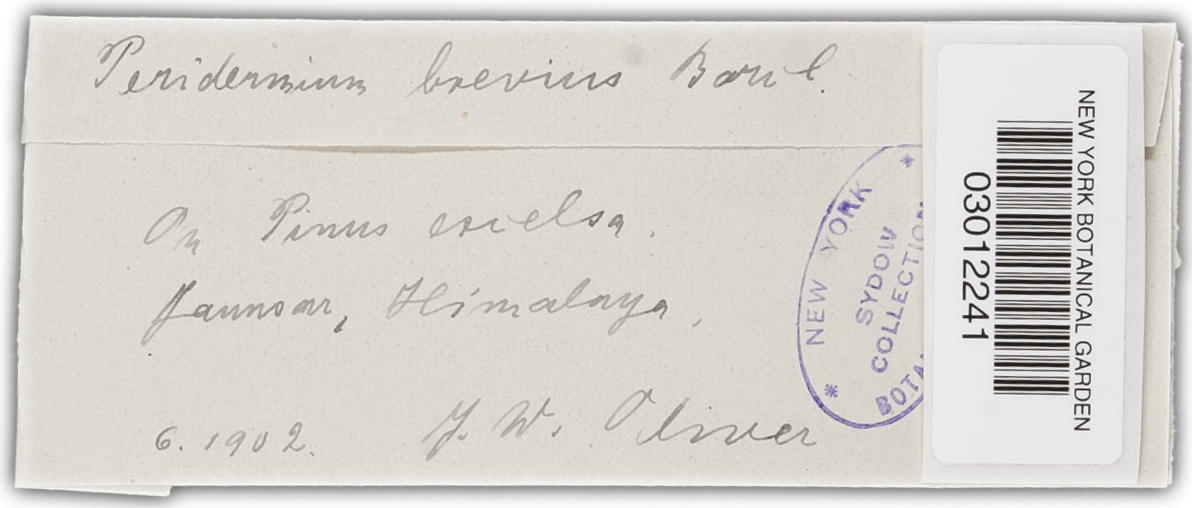 Peridermium brevius Barcl.
On Pinus excelsa.
Jaunsar, Himalaya,
6. 1902. J. W. Oliver
* NEW YORK *
SYDOW
COLLECTION
BOTA
NEW YORK BOTANICAL GARDEN
03012241